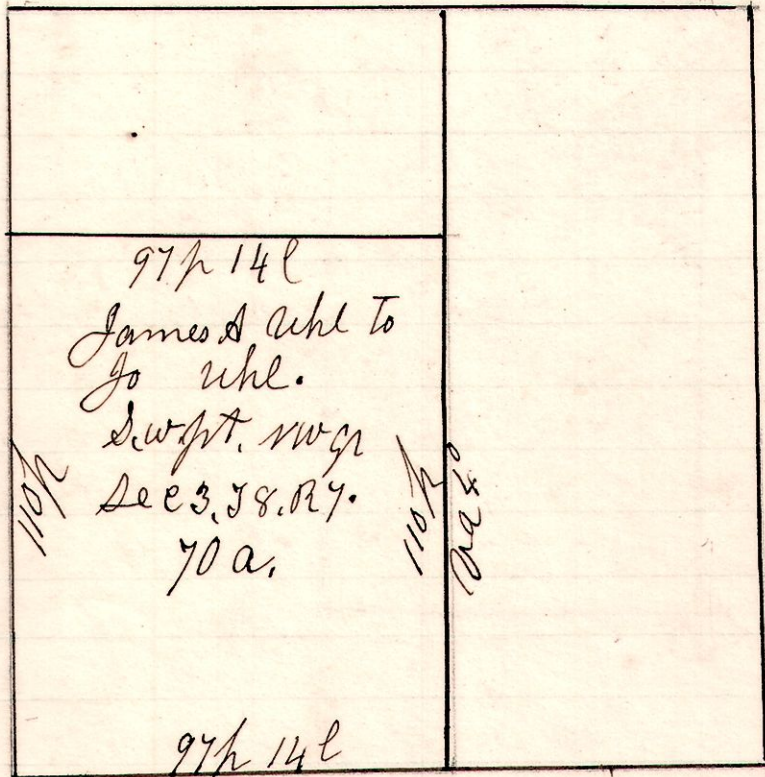 97p 14l
James A Uhl To
Jo Uhl.
S.w.pt. nw qr
Sec 3, T8, R7.
70 a.
110p
110p
Va 4°
97p 14l